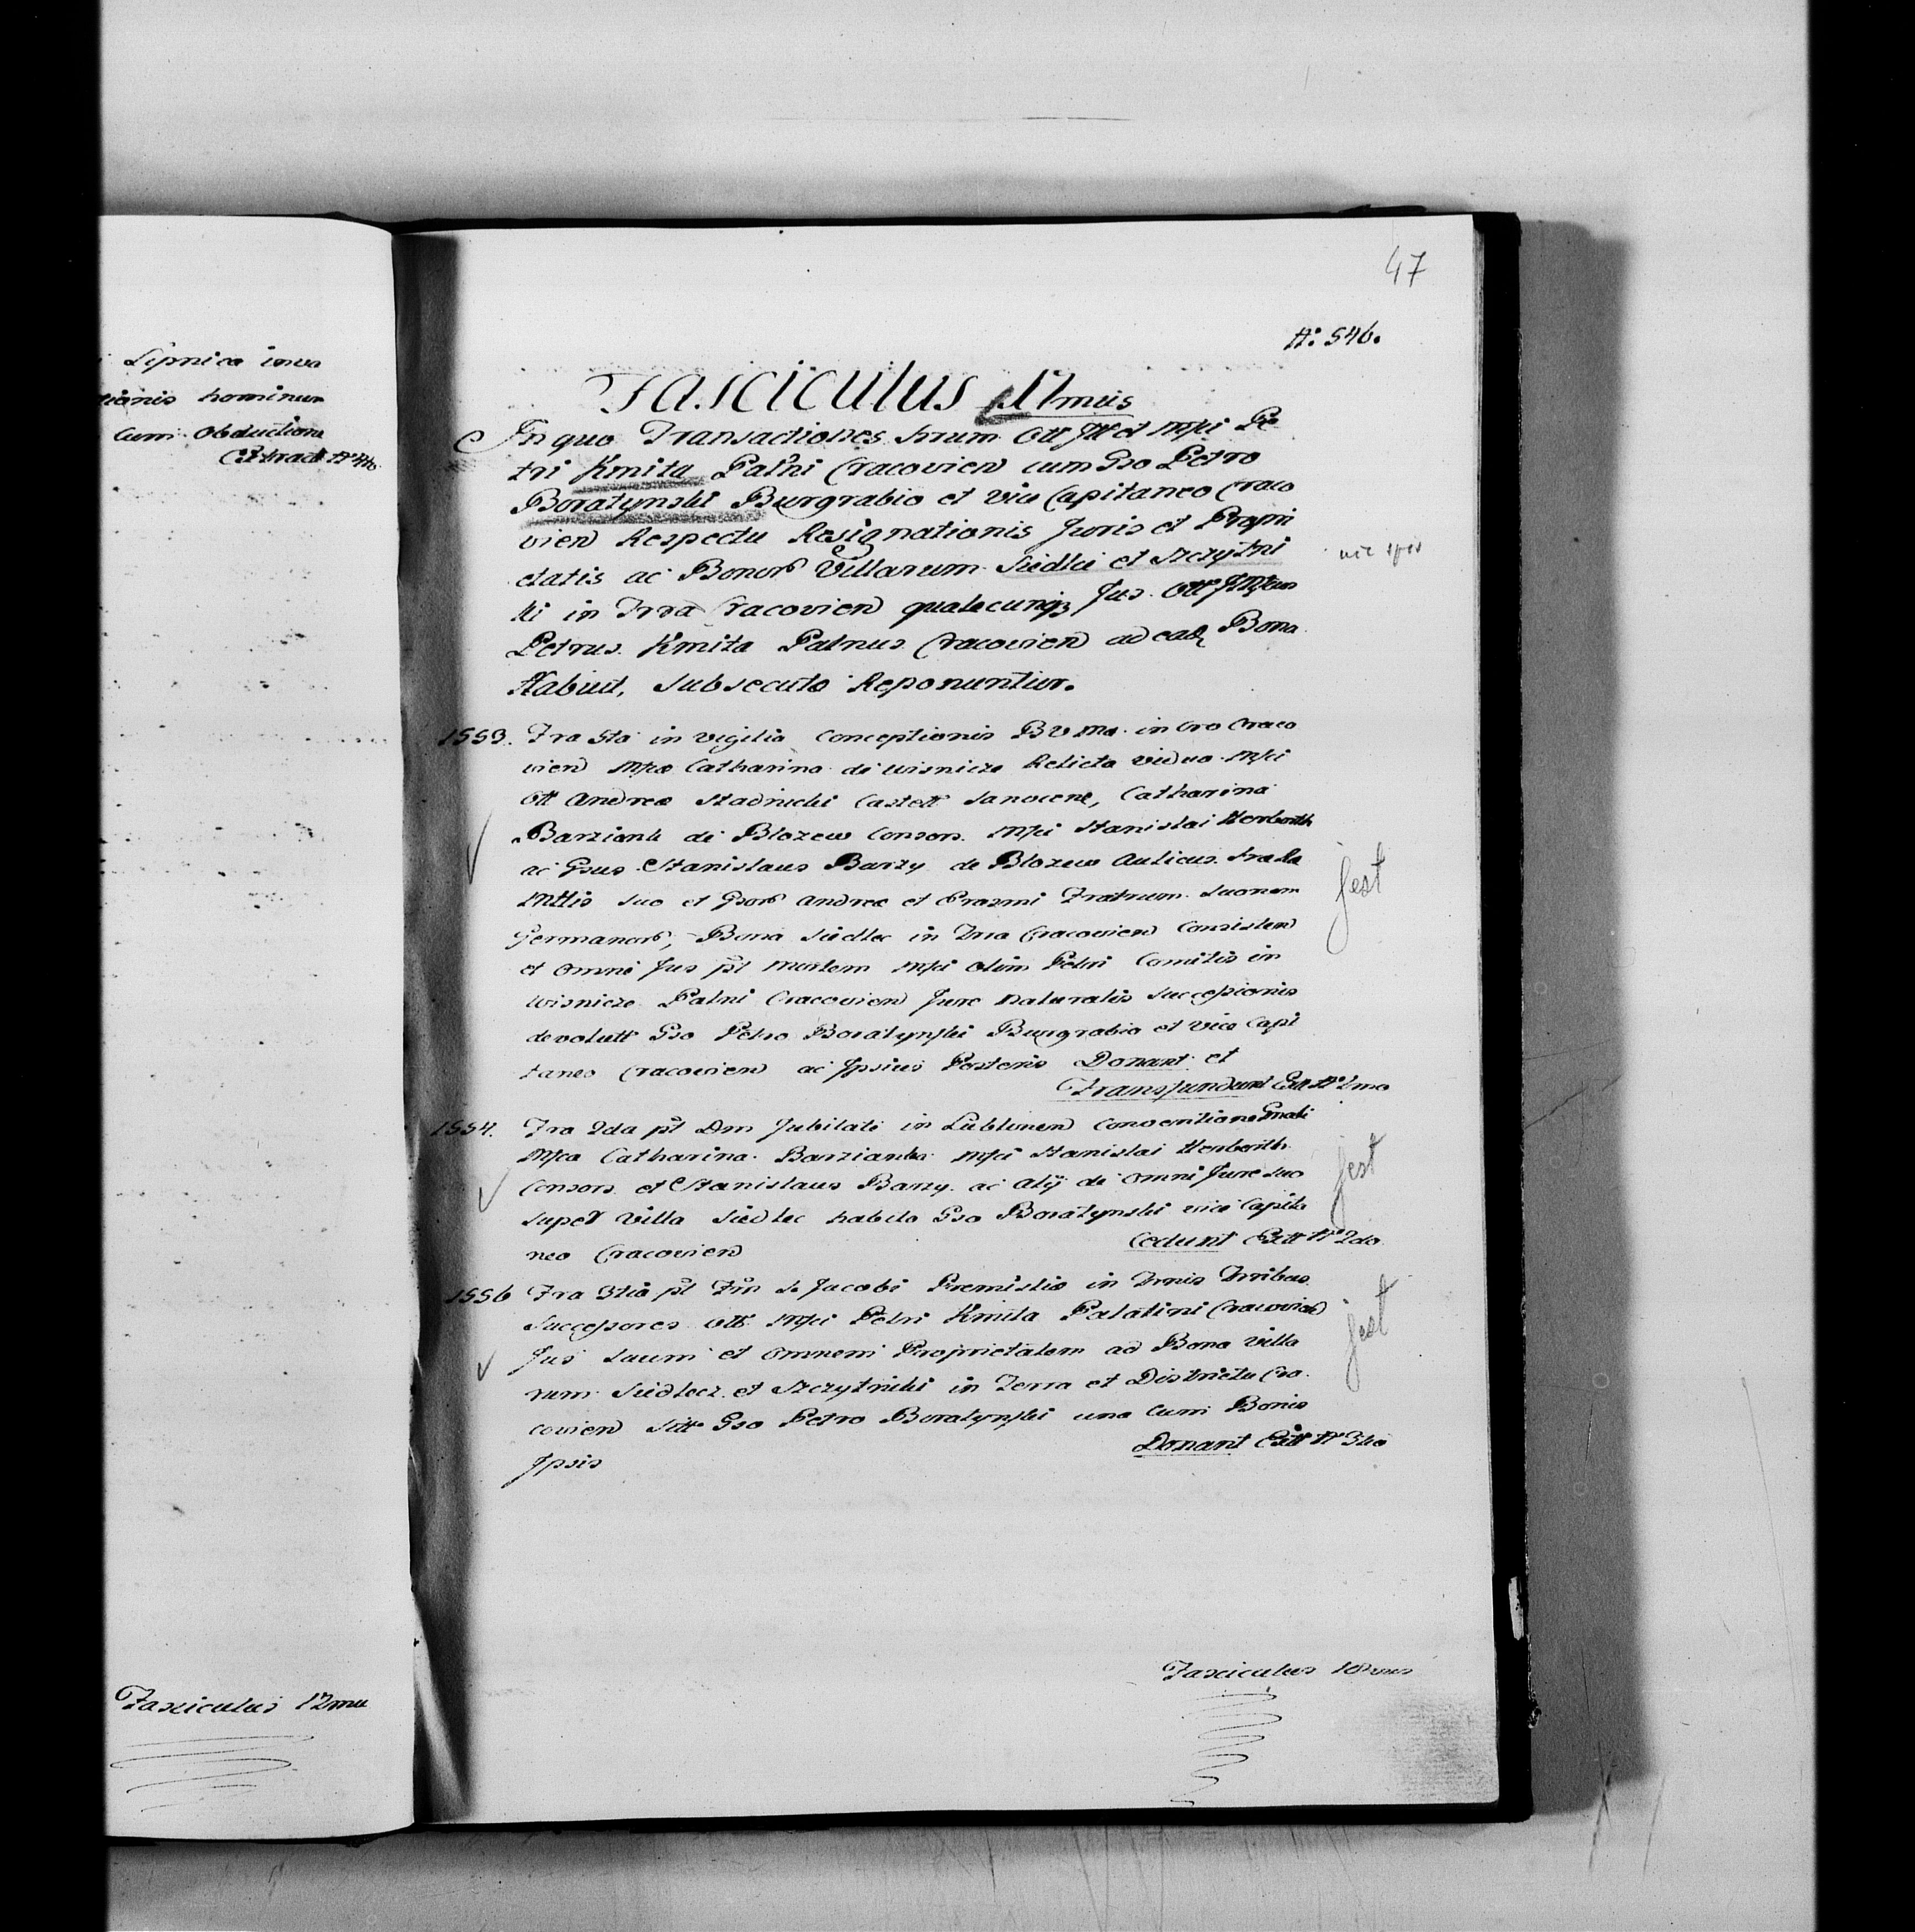 Lipnica inva
tionis hominum
cum Obductione
Extract N° 4to
Fasciculus 12mu
47
N: 546.
Fasciculus 17mus
In quo Transactiones Olt Jll et Mfci Pe
tri Kmita Palni Cracovien cum Gso Petro
Boratynski Burgrabio et Vice Capitaneo Craco
vien Respectu Resignationis Juris et Propri
etatis ac Bonor Villarum Siedlce et Szczytni
ki in Trra Cracovien qualecunq Jus Olt
nic spis
Petrus Kmita Palnus Cracovien ad ead Bona
Habuit, subsecuto Reponuntur.
1553. Fra 5ta in vigilia Conceptionis B V Ma in Cro Craco
vien Mfca Catharina de Wisnicze Relicta vidua Mfci
Olt Andrea Stadnicki Castell Sanocene, Catharina
Barzianka de Blozew Consors Mfci Stanislai Herborth
ac Gsus Stanislaus Barzy de Blozew Aulicus Sra Ra
Mttis suo et Gsor Andrea et Erasmi Fratrum Suorum
Germanor, Bona Siedlec in Trra Cracovien Consisten
et Omne Jus pt Mortem Mfci olim Petri Comitis in
Wisnicze Palni Cracovien Jure Naturalis Successionis
devolutt Gso Petro Boratynski Burgrabio et Vice Capi
taneo Cracovien ac Ipsius Posteris Donant et
Transfundunt Extt N° 1mo
jest
1554. Fra 2da pt Dm Jubilate in Lublinen Conventione Gnali
Mfca Catharina Barzianka Mfci Stanislai Herborth
Consors et Stanislaus Barzy ac alij de Omni Jure suo
super Villa Siedlec habito Gso Boratynski vice Capita
neo Cracovien Cedunt Extt N° 2do
jest
1556 Fra 3tia pt Fm S. Jacobi Premislia in Trnis Trribus
Successores Olt Mfci Petri Kmita Palatini Cracovien
Jus suum et Omnem Proprietatem ad Bona Villa
rum Siedlecz et Szczytniki in Terra et Districtu Cra
covien Sitt Gso Petro Boratynski una cum Bonis
Ipsis Donant Extt N° 3tio
jest
Fasciculus 18vus